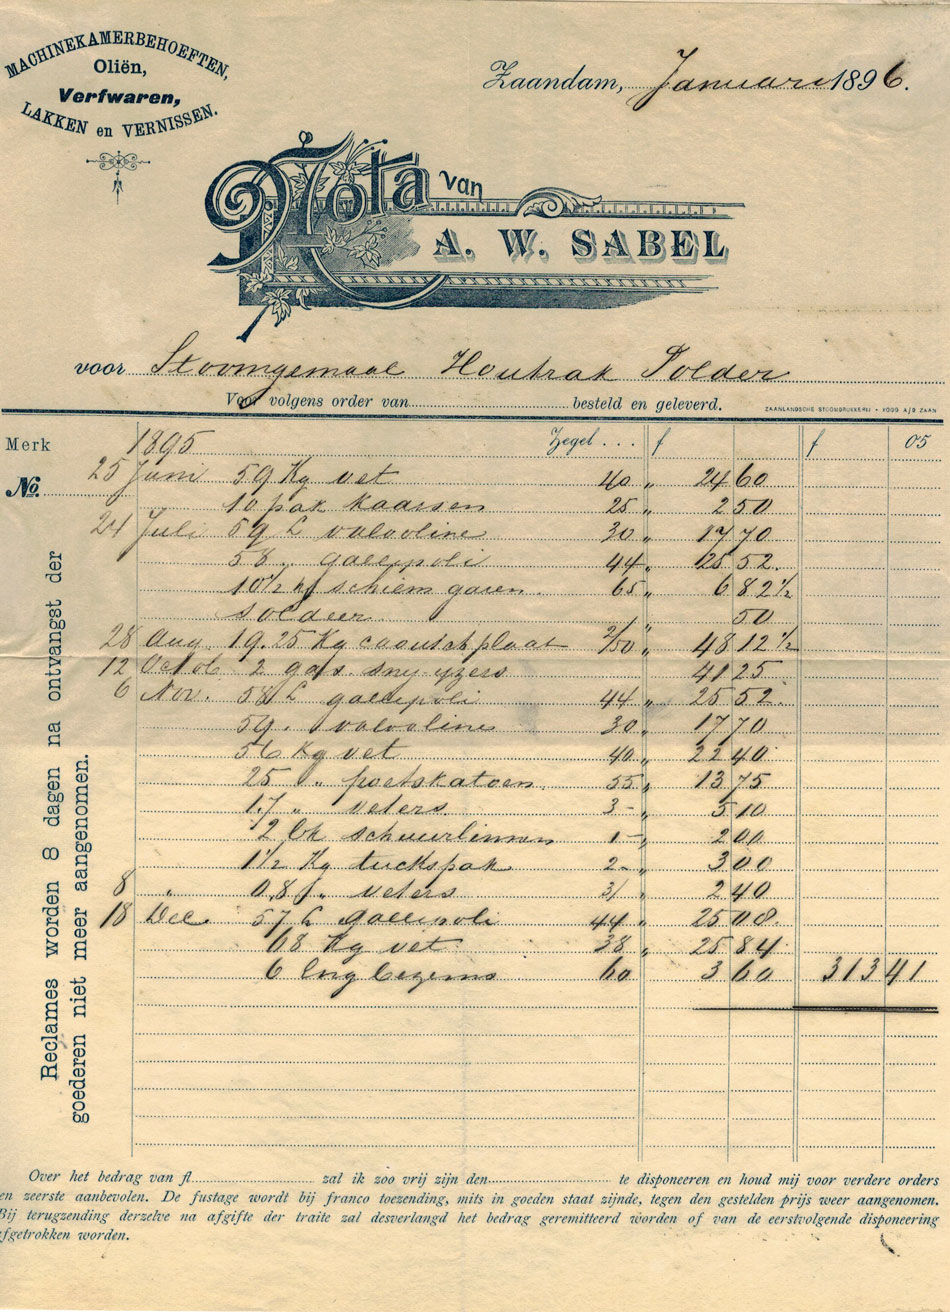 MACHINEKAMERBEHOEFTEN,
Oliën,
Verfwaren,
LAKKEN en VERNISSEN.
Zaandam, Januari 1896.
Nota van
A. W. SABEL
voor Stoomgemaal Houtrak Polder
Voor volgens order van besteld en geleverd.
ZAANLANDSCHE STOOMDRUKKERIJ • KOOG A/D ZAAN
Merk 1895 Zegel... f f 05
No. 25 Juni 59 Kg vet 40 " 24 60
10 pak kaarsen 25 " 2 50
24 Juli 59 L valvoline 30 " 17 70
58 " gallipoli 44 " 25 52.
10 1/2 kg schiemgaren. 65 " 6 82 1/2
soldeer " 50
28 Aug. 19.25 Kg caoutch plaat 2/50 " 48 12 1/2
12 Octob 2 gas sny yzers 41 25
6 Nov. 58 L gallipoli 44 " 25 52.
59 " valvoline 30 " 17 70
56 Kg vet 40 " 22 40
25 " poetskatoen 55 " 13 75
1.7 " veters. 3- " 5 10
2 bk schuurlinnen 1- " 2 00
1 1/2 Kg tuckspak 2- " 3 00
8 " 0,8 " veters 3/ " 2 40
18 Dec. 57 L gallipoli 44 " 25 08.
68 Kg vet 38 " 25 84
6 Eng bezems 60 3 60 313 41
Reclames worden 8 dagen na ontvangst der
goederen niet meer aangenomen.
Over het bedrag van fl. zal ik zoo vrij zijn den te disponeeren en houd mij voor verdere orders
en zeerste aanbevolen. De fustage wordt bij franco toezending, mits in goeden staat zijnde, tegen den gestelden prijs weer aangenomen.
Bij terugzending derzelve na afgifte der traite zal desverlangd het bedrag geremitteerd worden of van de eerstvolgende disponeering
afgetrokken worden.